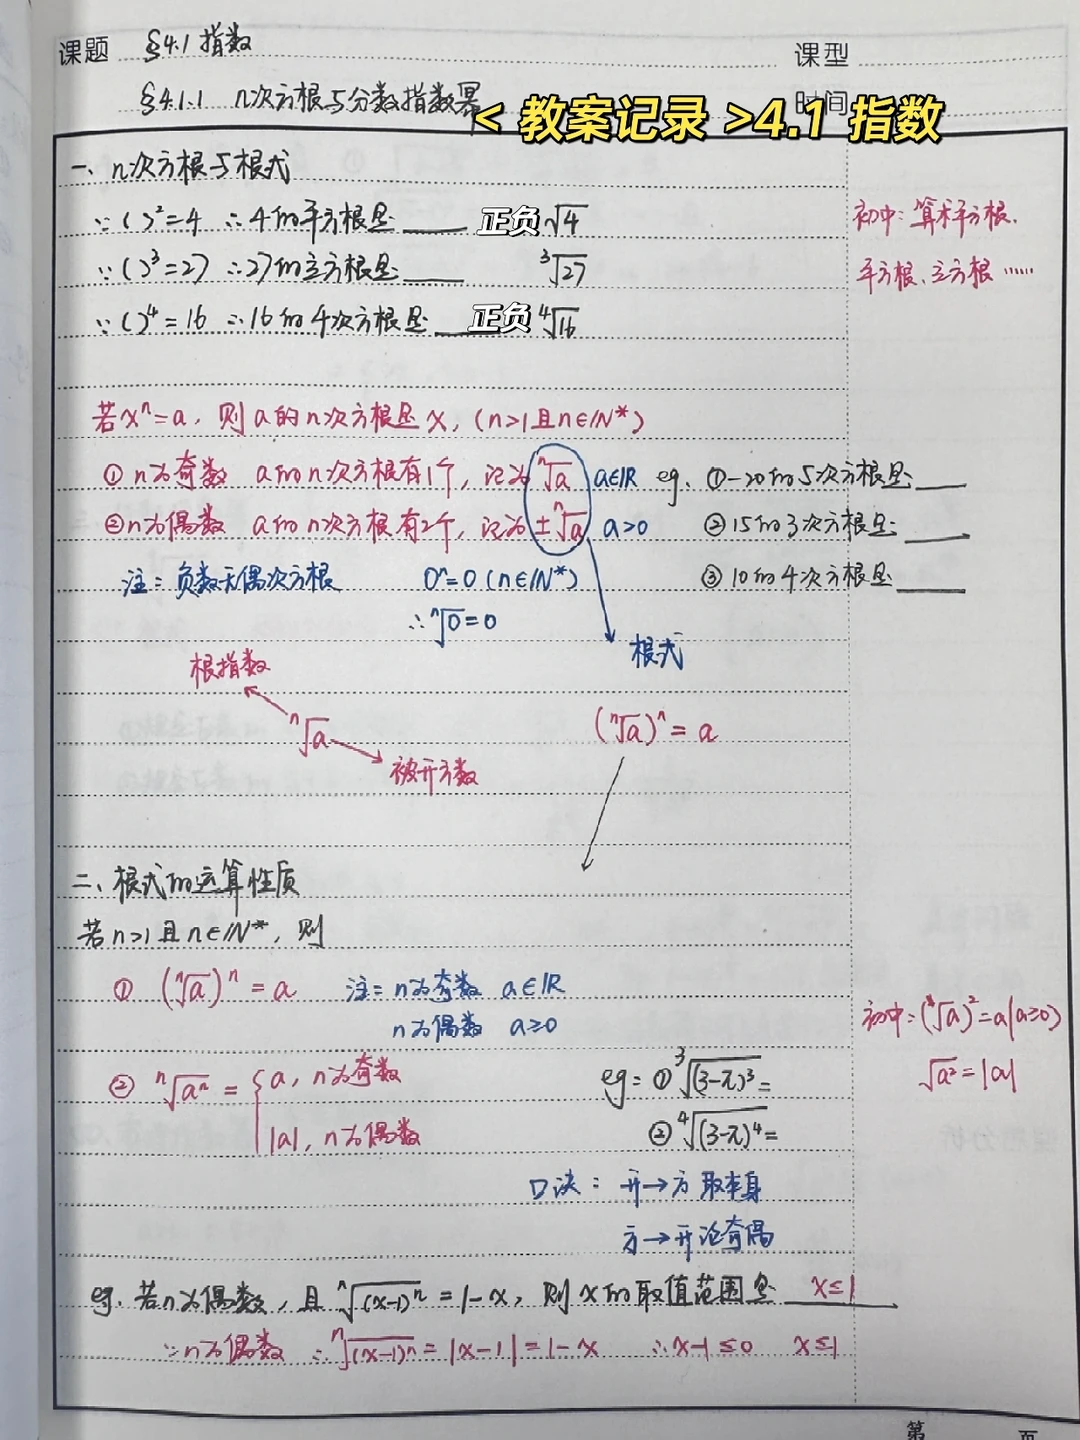 课题 §4.1 指数 课型
§4.1.1 n次方根与分数指数幂 时间
<教案记录>4.1 指数
一、n次方根与根式
∵( )²=4 ∴4的平方根是____ 正负√4
初中：算术平方根、
∵( )³=27 ∴27的立方根是____ ³√27
平方根、立方根……
∵( )⁴=16 ∴16的4次方根是____ 正负⁴√16
若xⁿ=a，则a的n次方根是x，(n>1且n∈N*)
①n为奇数 a的n次方根有1个，记为ⁿ√a a∈R eg. ①-20的5次方根是____
②n为偶数 a的n次方根有2个，记为±ⁿ√a a>0 ②15的3次方根是____
注：负数无偶次方根 0ⁿ=0(n∈N*) ③10的4次方根是____
∴ⁿ√0=0
根式
根指数
ⁿ√a (ⁿ√a)ⁿ=a
被开方数
二、根式的运算性质
若n>1且n∈N*，则
① (ⁿ√a)ⁿ=a 注：n为奇数 a∈R
n为偶数 a≥0
初中：(√a)²=a(a≥0)
② ⁿ√aⁿ={a，n为奇数 eg：①³√(3-π)³=
√a²=|a|
|a|，n为偶数 ②⁴√(3-π)⁴=
口诀：开→方 取本身
方→开 论奇偶
eg. 若n为偶数，且ⁿ√(x-1)ⁿ=1-x，则x的取值范围是 x≤1
∵n为偶数 ∴ⁿ√(x-1)ⁿ=|x-1|=1-x ∴x-1≤0 x≤1
第 页